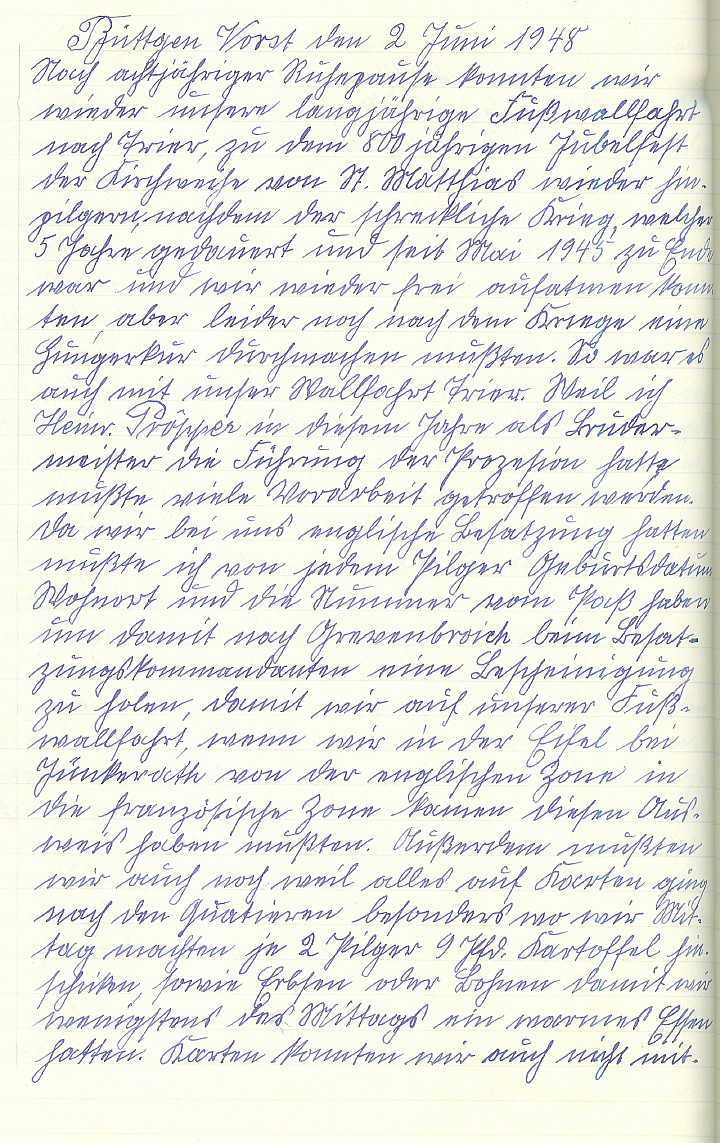 Büttgen Vorst den 2 Juni 1948
Nach achtjähriger Ruhepause konnten wir
wieder unsere langjährige Fußwallfahrt
nach Trier, zu dem 800 jährigen Jubelfest
der Kirchweihe von St. Matthias wieder hin-
pilgern, nachdem der schreckliche Krieg, welcher
5 Jahre gedauert und seit Mai 1945 zu Ende
war und wir wieder frei aufatmen konn-
ten, aber leider noch nach dem Kriege eine
Hungerkur durchmachen mußten. So war es
auch mit unser Wallfahrt Trier. Weil ich
Heinr. Pröpper in diesem Jahre als Bruder-
meister die Führung der Prozesion hatte
mußte viele Vorarbeit getroffen werden.
Da wir bei uns englische Besatzung hatten
mußte ich von jedem Pilger Geburtsdatum
Wohnort und die Nummer vom Paß haben
um damit nach Grevenbroich beim Besat-
zungskommandanten eine Bescheinigung
zu holen, damit wir auf unserer Fuß-
wallfahrt, wenn wir in der Eifel bei
Jünkerath von der englischen Zone in
die französische Zone kamen diesen Aus-
weis haben mußten. Außerdem mußten
wir auch noch weil alles auf Karten ging
nach den Quatieren besonders wo wir Mit-
tag machten je 2 Pilger 9 Pfd. Kartoffel hin-
schicken, sowie Erbsen oder Bohnen damit wir
wenigstens des Mittags ein warmes Essen
hatten. Karten konnten wir auch nicht mit-